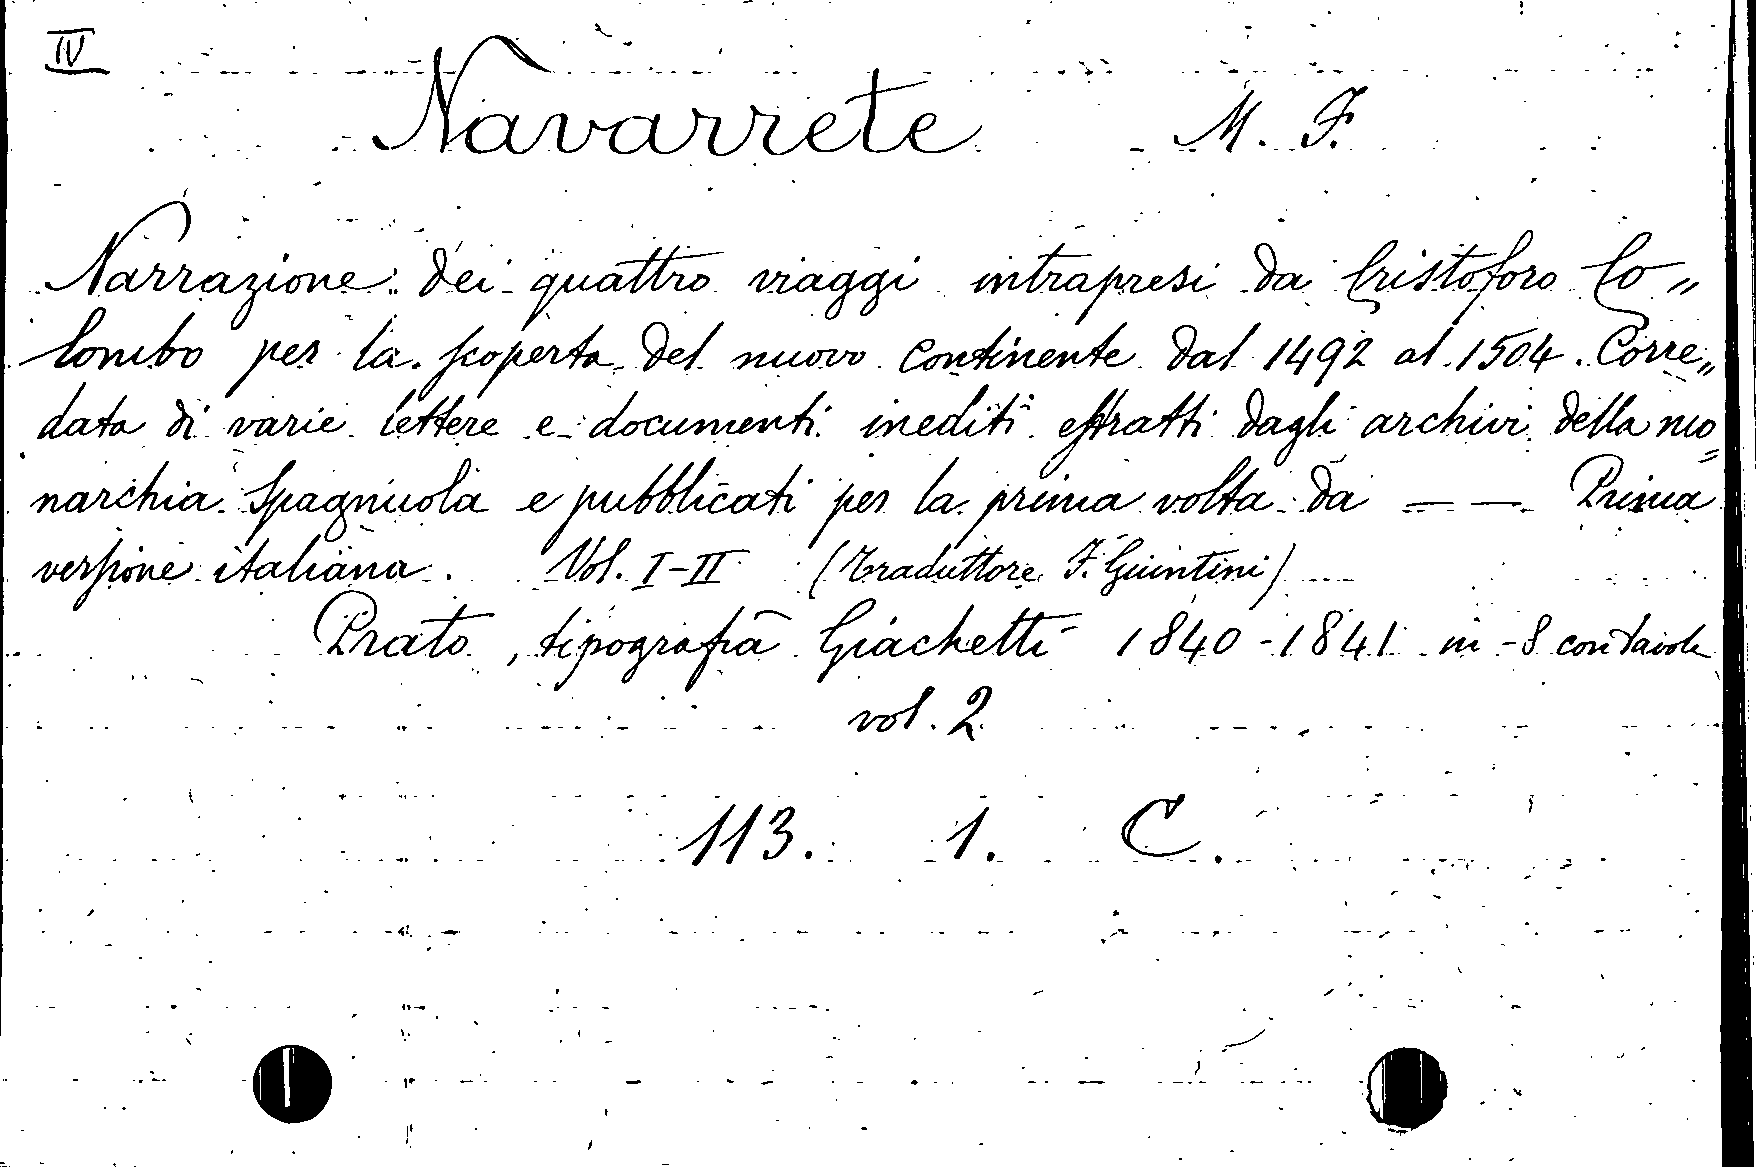 IV
Navarrete M. F.
Narrazione dei quattro viaggi intrapresi da Cristoforo Co„
lombo per la scoperta del nuovo continente dal 1492 al 1504. Corre„
data di varie lettere e documenti inediti estratti dagli archivi della mo=
narchia Spagnuola e pubblicati per la prima volta da — — Prima
versione italiana. Vol. I-II (Traduttore F. Giuntini)
Prato, tipografia Giachetti 1840-1841 in-8 con tavole
vol. 2
113. 1. C.